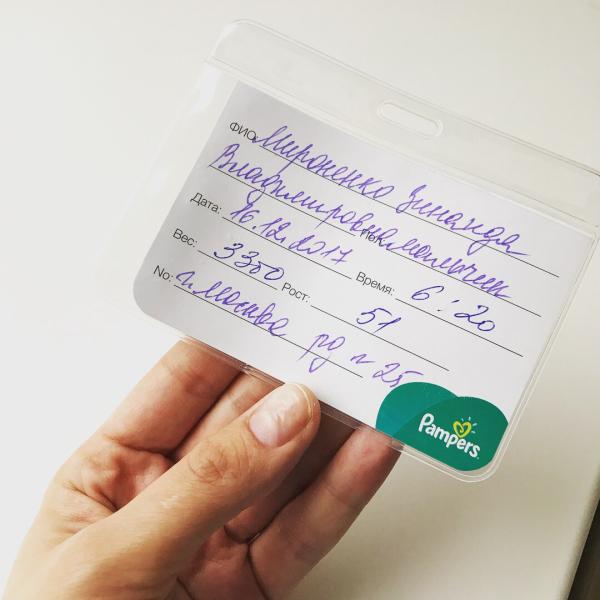 ФИО: Мироненко Зинаида
Владимировна Пол: мальчик
Дата: 16.12.2017 Время: 6:20
Вес: 3350 Рост: 51
No: г. Москва рд № 25
Pampers